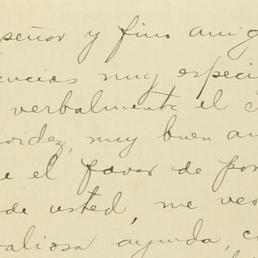 señor y fino amig
encias muy especi
verbalmente el
videz, muy buen am
e el favor de por
de usted, me veo
valiosa ayuda, c